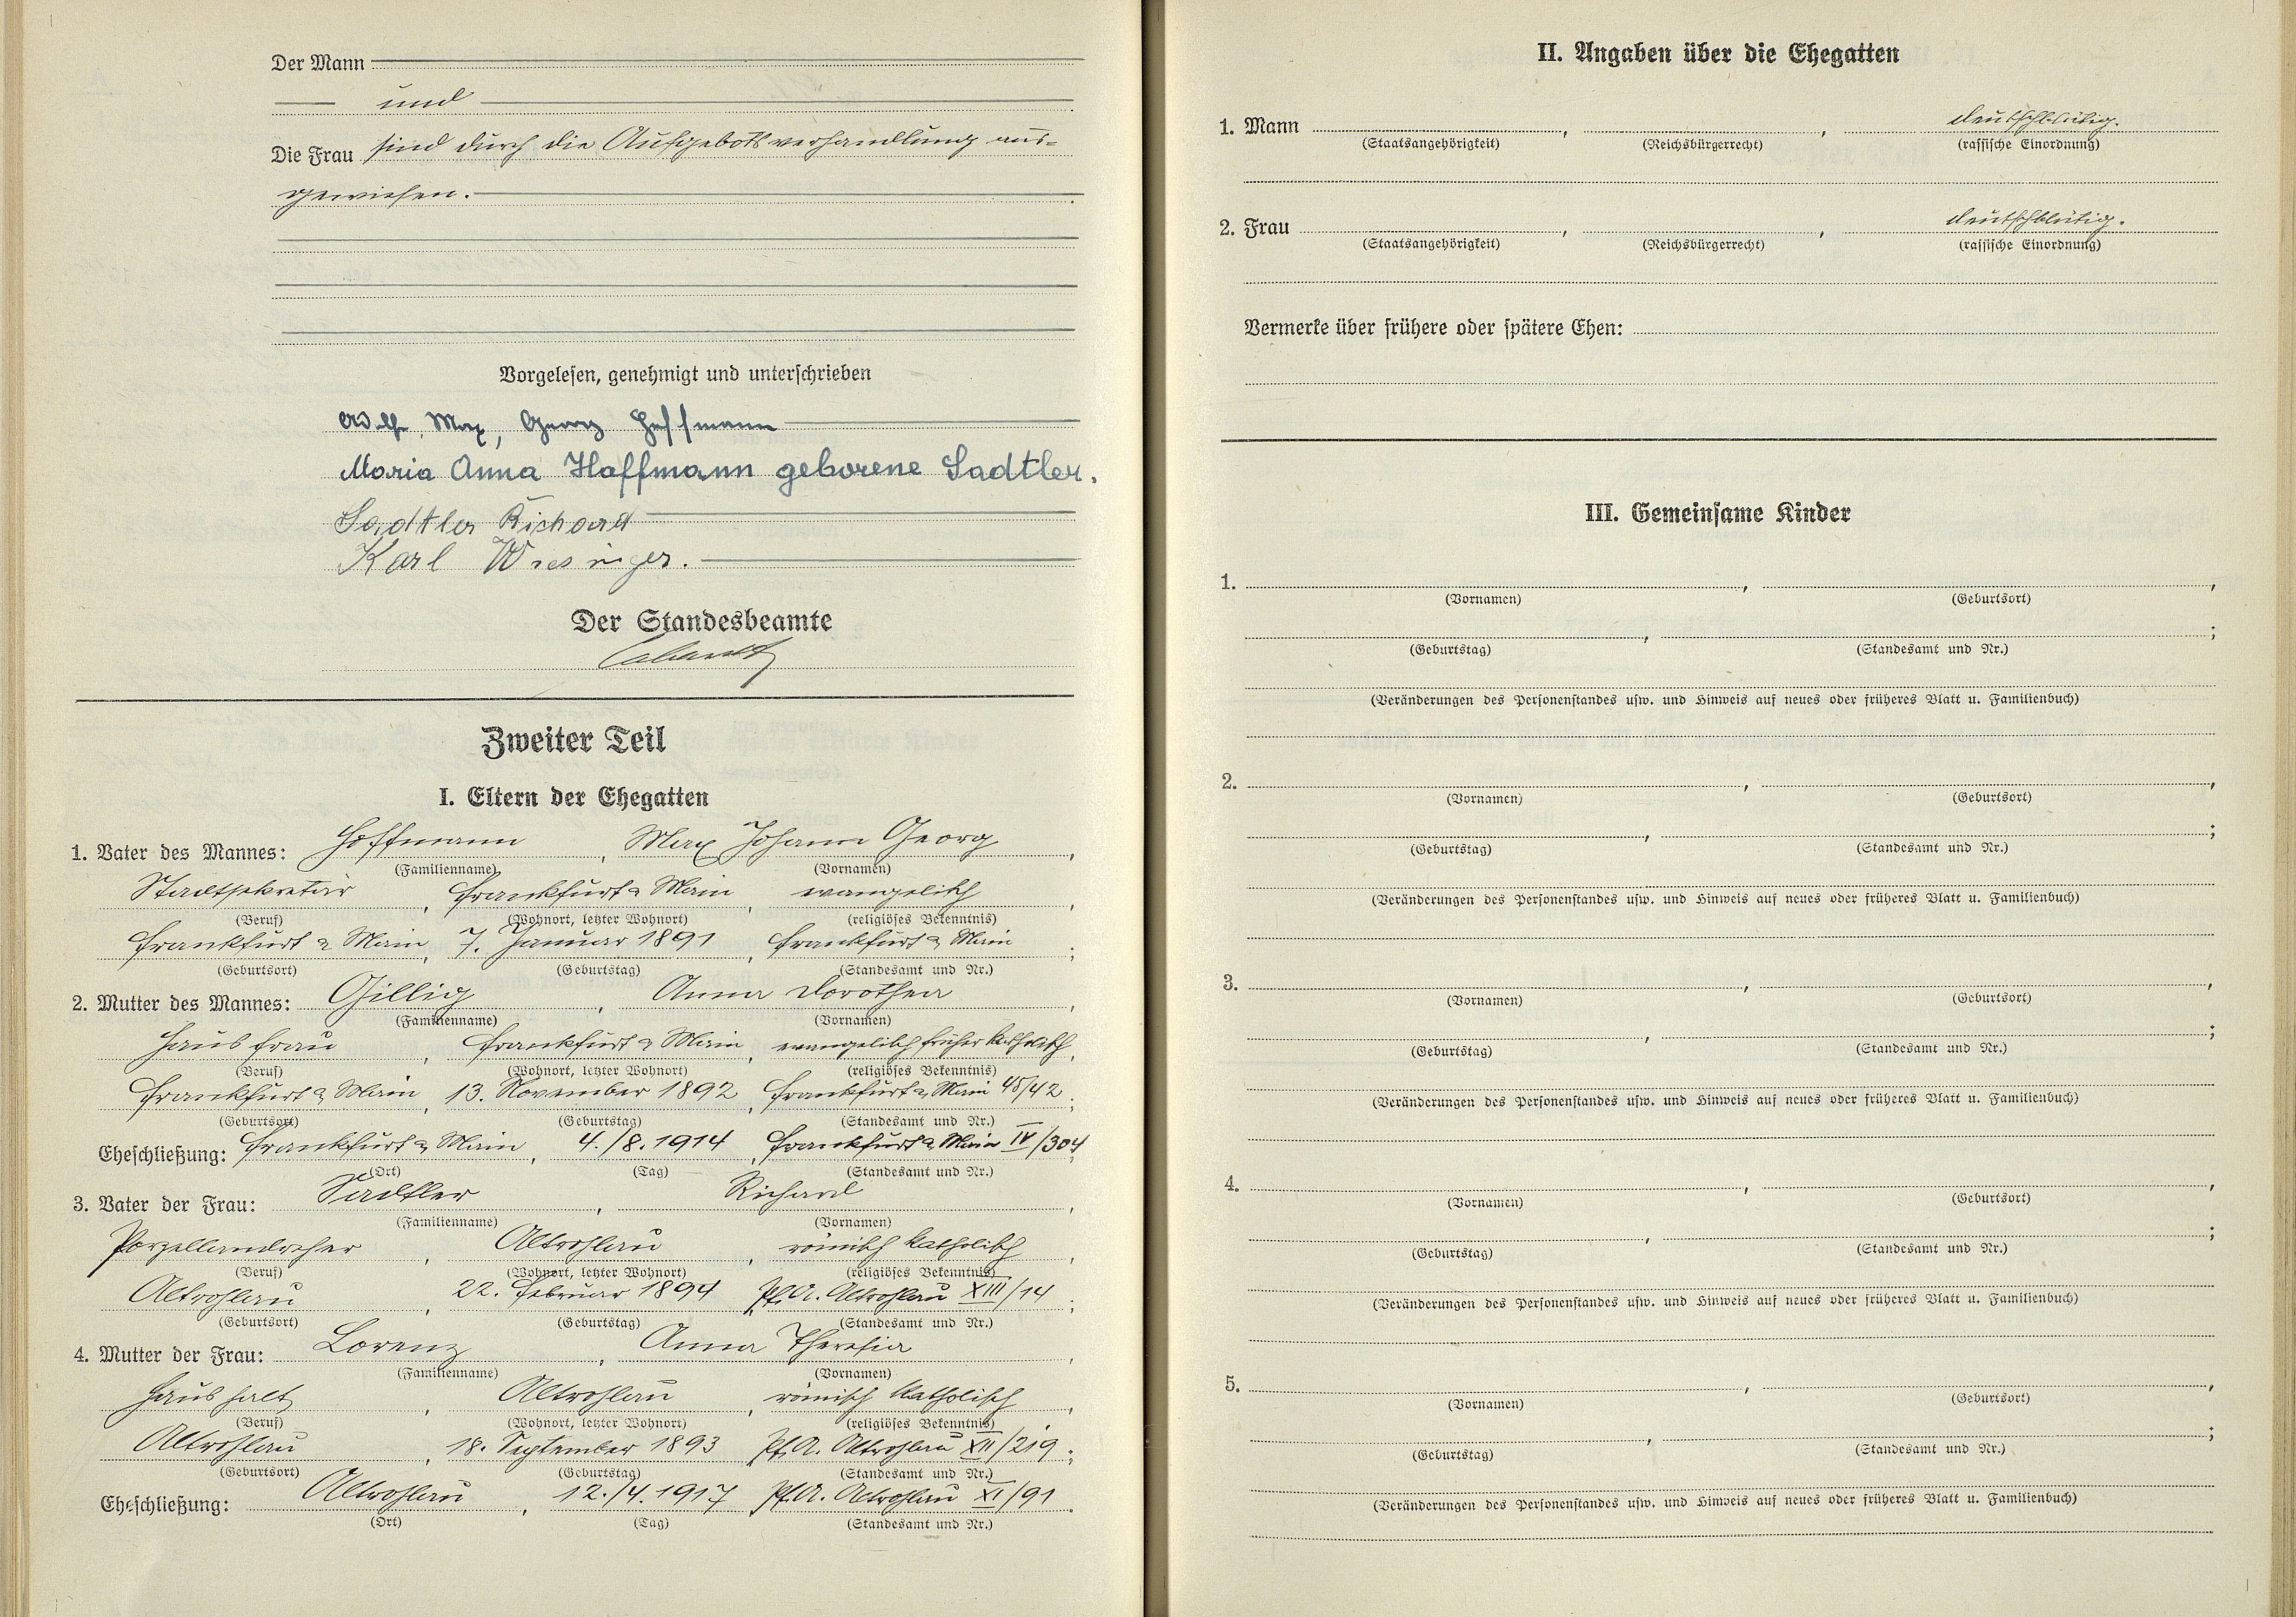 Der Mann
und
Die Frau sind durch die Aufgebotsverhandlung aus-
gewiesen.
Vorgelesen, genehmigt und unterschrieben
Adolf, Max, Georg Hoffmann
Maria Anna Hoffmann geborene Sadtler.
Sadtler Richard
Karl Wiesinger.
Der Standesbeamte
Zweiter Teil
I. Eltern der Ehegatten
1. Vater des Mannes: Hoffmann, Max Johann Georg,
(Familienname) (Vornamen)
Stadtsekretär, Frankfurt a Main, evangelisch,
(Beruf) (Wohnort, letzter Wohnort) (religiöses Bekenntnis)
Frankfurt a Main, 7. Januar 1891, Frankfurt a Main;
(Geburtsort) (Geburtstag) (Standesamt und Nr.)
2. Mutter des Mannes: Gillig, Anna Dorothea,
(Familienname) (Vornamen)
Hausfrau, Frankfurt a Main, evangelisch früher katholisch,
(Beruf) (Wohnort, letzter Wohnort) (religiöses Bekenntnis)
Frankfurt a Main, 13. November 1892, Frankfurt a Main 45/42;
(Geburtsort) (Geburtstag) (Standesamt und Nr.)
Eheschließung: Frankfurt a Main, 4./8.1914, Frankfurt a Main IV/304;
(Ort) (Tag) (Standesamt und Nr.)
3. Vater der Frau: Sadtler, Richard,
(Familienname) (Vornamen)
Porzellandreher, Altrohlau, römisch katholisch,
(Beruf) (Wohnort, letzter Wohnort) (religiöses Bekenntnis)
Altrohlau, 22. Februar 1894, Pf.A. Altrohlau XIII/14;
(Geburtsort) (Geburtstag) (Standesamt und Nr.)
4. Mutter der Frau: Lorenz, Anna Theresia,
(Familienname) (Vornamen)
Haushalt, Altrohlau, römisch katholisch,
(Beruf) (Wohnort, letzter Wohnort) (religiöses Bekenntnis)
Altrohlau, 18. September 1893, Pf.A. Altrohlau XII/219;
(Geburtsort) (Geburtstag) (Standesamt und Nr.)
Eheschließung: Altrohlau, 12./4.1917, Pf.A. Altrohlau XI/91.
(Ort) (Tag) (Standesamt und Nr.)
II. Angaben über die Ehegatten
1. Mann , , deutschblütig.
(Staatsangehörigkeit) (Reichsbürgerrecht) (rassische Einordnung)
2. Frau , , deutschblütig.
(Staatsangehörigkeit) (Reichsbürgerrecht) (rassische Einordnung)
Vermerke über frühere oder spätere Ehen:
III. Gemeinsame Kinder
1. , ,
(Vornamen) (Geburtsort)
, ;
(Geburtstag) (Standesamt und Nr.)
(Veränderungen des Personenstandes usw. und Hinweis auf neues oder früheres Blatt u. Familienbuch)
2. , ,
(Vornamen) (Geburtsort)
, ;
(Geburtstag) (Standesamt und Nr.)
(Veränderungen des Personenstandes usw. und Hinweis auf neues oder früheres Blatt u. Familienbuch)
3. , ,
(Vornamen) (Geburtsort)
, ;
(Geburtstag) (Standesamt und Nr.)
(Veränderungen des Personenstandes usw. und Hinweis auf neues oder früheres Blatt u. Familienbuch)
4. , ,
(Vornamen) (Geburtsort)
, ;
(Geburtstag) (Standesamt und Nr.)
(Veränderungen des Personenstandes usw. und Hinweis auf neues oder früheres Blatt u. Familienbuch)
5. , ,
(Vornamen) (Geburtsort)
, ;
(Geburtstag) (Standesamt und Nr.)
(Veränderungen des Personenstandes usw. und Hinweis auf neues oder früheres Blatt u. Familienbuch)